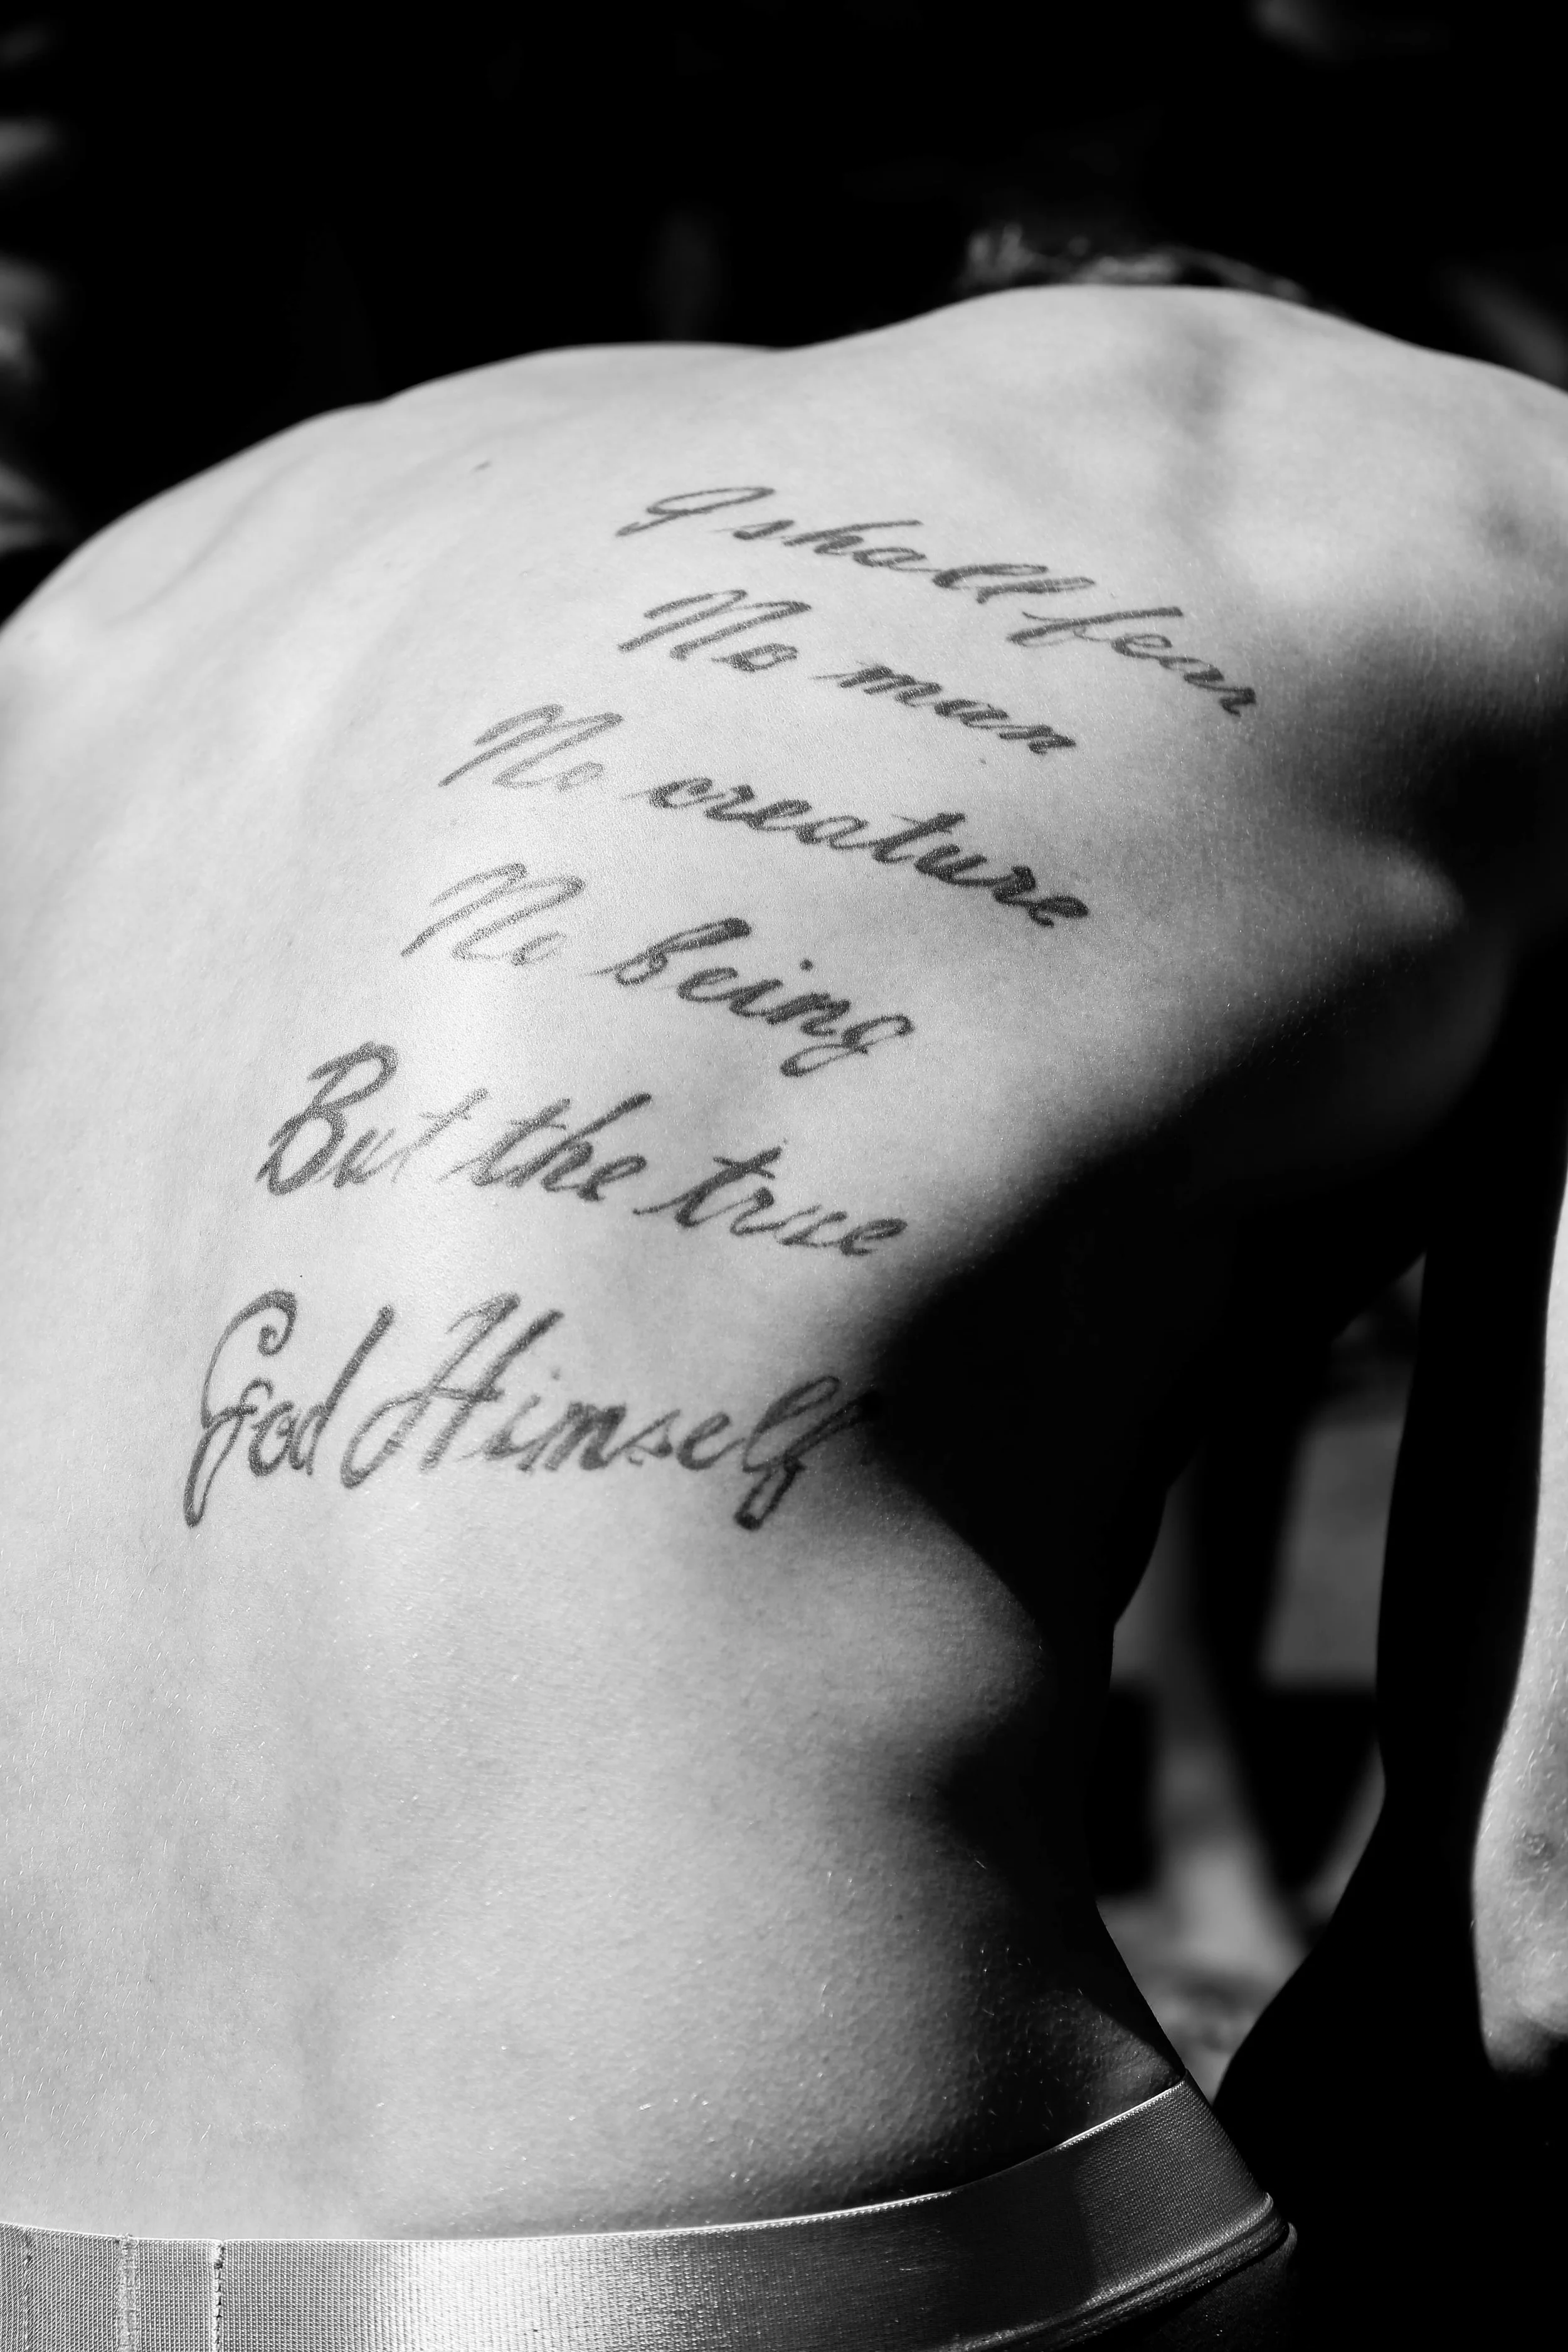 I shall fear
No man
No creature
No being
But the true
God Himself